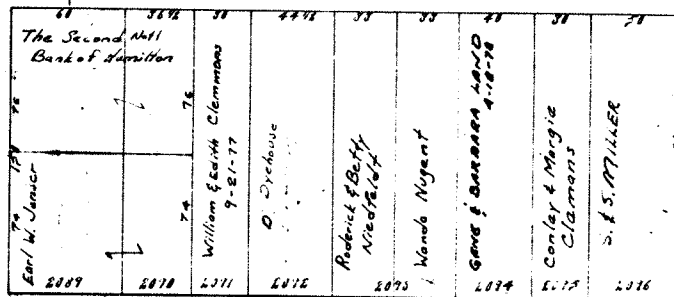 60 36½ 30 44½ 33 33 40 30 50
The Second Nat'l
Bank of Hamilton
76
76
154
74
74
Earl W.
William & Edith Clemmons
9-21-77
D. Dyehouse
Roderick & Betty
Niedfeldt
Wanda Nugent
GENE & BARBARA LAND
4-18-78
Conley & Margie
Clamans
S. & S. MILLER
2089 2090 2091 2092 2093 2094 2095 2096